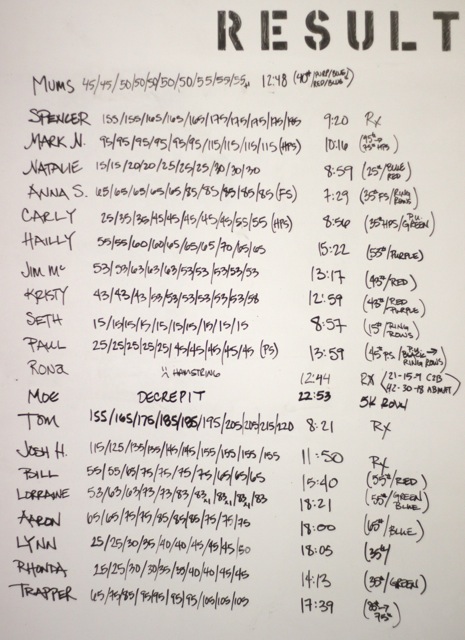 RESULT
MUMS 45/45/50/50/50/50/50/55/55/55 12:48 (40#/PURP/BLUE/ RED/BLUE)
SPENCER 155/155/165/165/165/175/175/175/175/185 9:20 RX
MARK N. 95/95/95/95/95/95/115/115/115/115 (HPS) 10:16 (95#→ 75# HPS)
NATALIE 15/15/20/20/25/25/25/30/30/30 8:59 (25#/BLUE RED)
ANNA S. 65/65/65/65/65/85/85/85/85/85 (FS) 7:29 (35#FS/RING ROWS)
CARLY 25/35/35/45/45/45/45/45/55/55 (HPS) 8:56 (35#HPS/P.U. GREEN)
HAILLY 55/55/60/60/65/65/65/70/65/65 15:22 (55#/PURPLE)
JIM MC 53/53/63/63/63/53/53/53/53/53 13:17 (43#/RED)
KRISTY 43/43/43/53/53/53/53/53/53/58 12:59 (43#/RED PURPLE)
SETH 15/15/15/15/15/15/15/15/15/15 8:57 (15#/RING ROWS)
PAUL 25/25/25/25/25/45/45/45/45/45 (PS) 13:59 (45#PS/P.U. BLACK→ RING ROWS)
RONZ HAMSTRING 12:44 RX (21-15-9 C2B 42-30-18 ABMAT)
MOE DECREPIT 22:53 5K ROW
TOM 155/165/175/185/185/195/205/205/215/220 8:21 RX
JOSH H. 115/125/135/135/145/145/155/155/155/155 11:50 RX
BILL 55/55/65/75/75/75/75/65/65/65 15:40 (55#/RED)
LORRAINE 53/63/63/73/73/83/83/83/83/83 18:21 (55#/GREEN BLUE)
AARON 65/65/75/75/85/85/85/75/75/75 18:00 (65#/BLUE)
LYNN 25/25/30/35/40/40/45/45/45/50 18:05 (35#)
RHONDA 25/25/30/30/35/35/40/40/45/45 14:13 (35#/GREEN)
TRAPPER 65/75/85/95/95/95/95/105/105/105 17:39 (85#→ 75#)